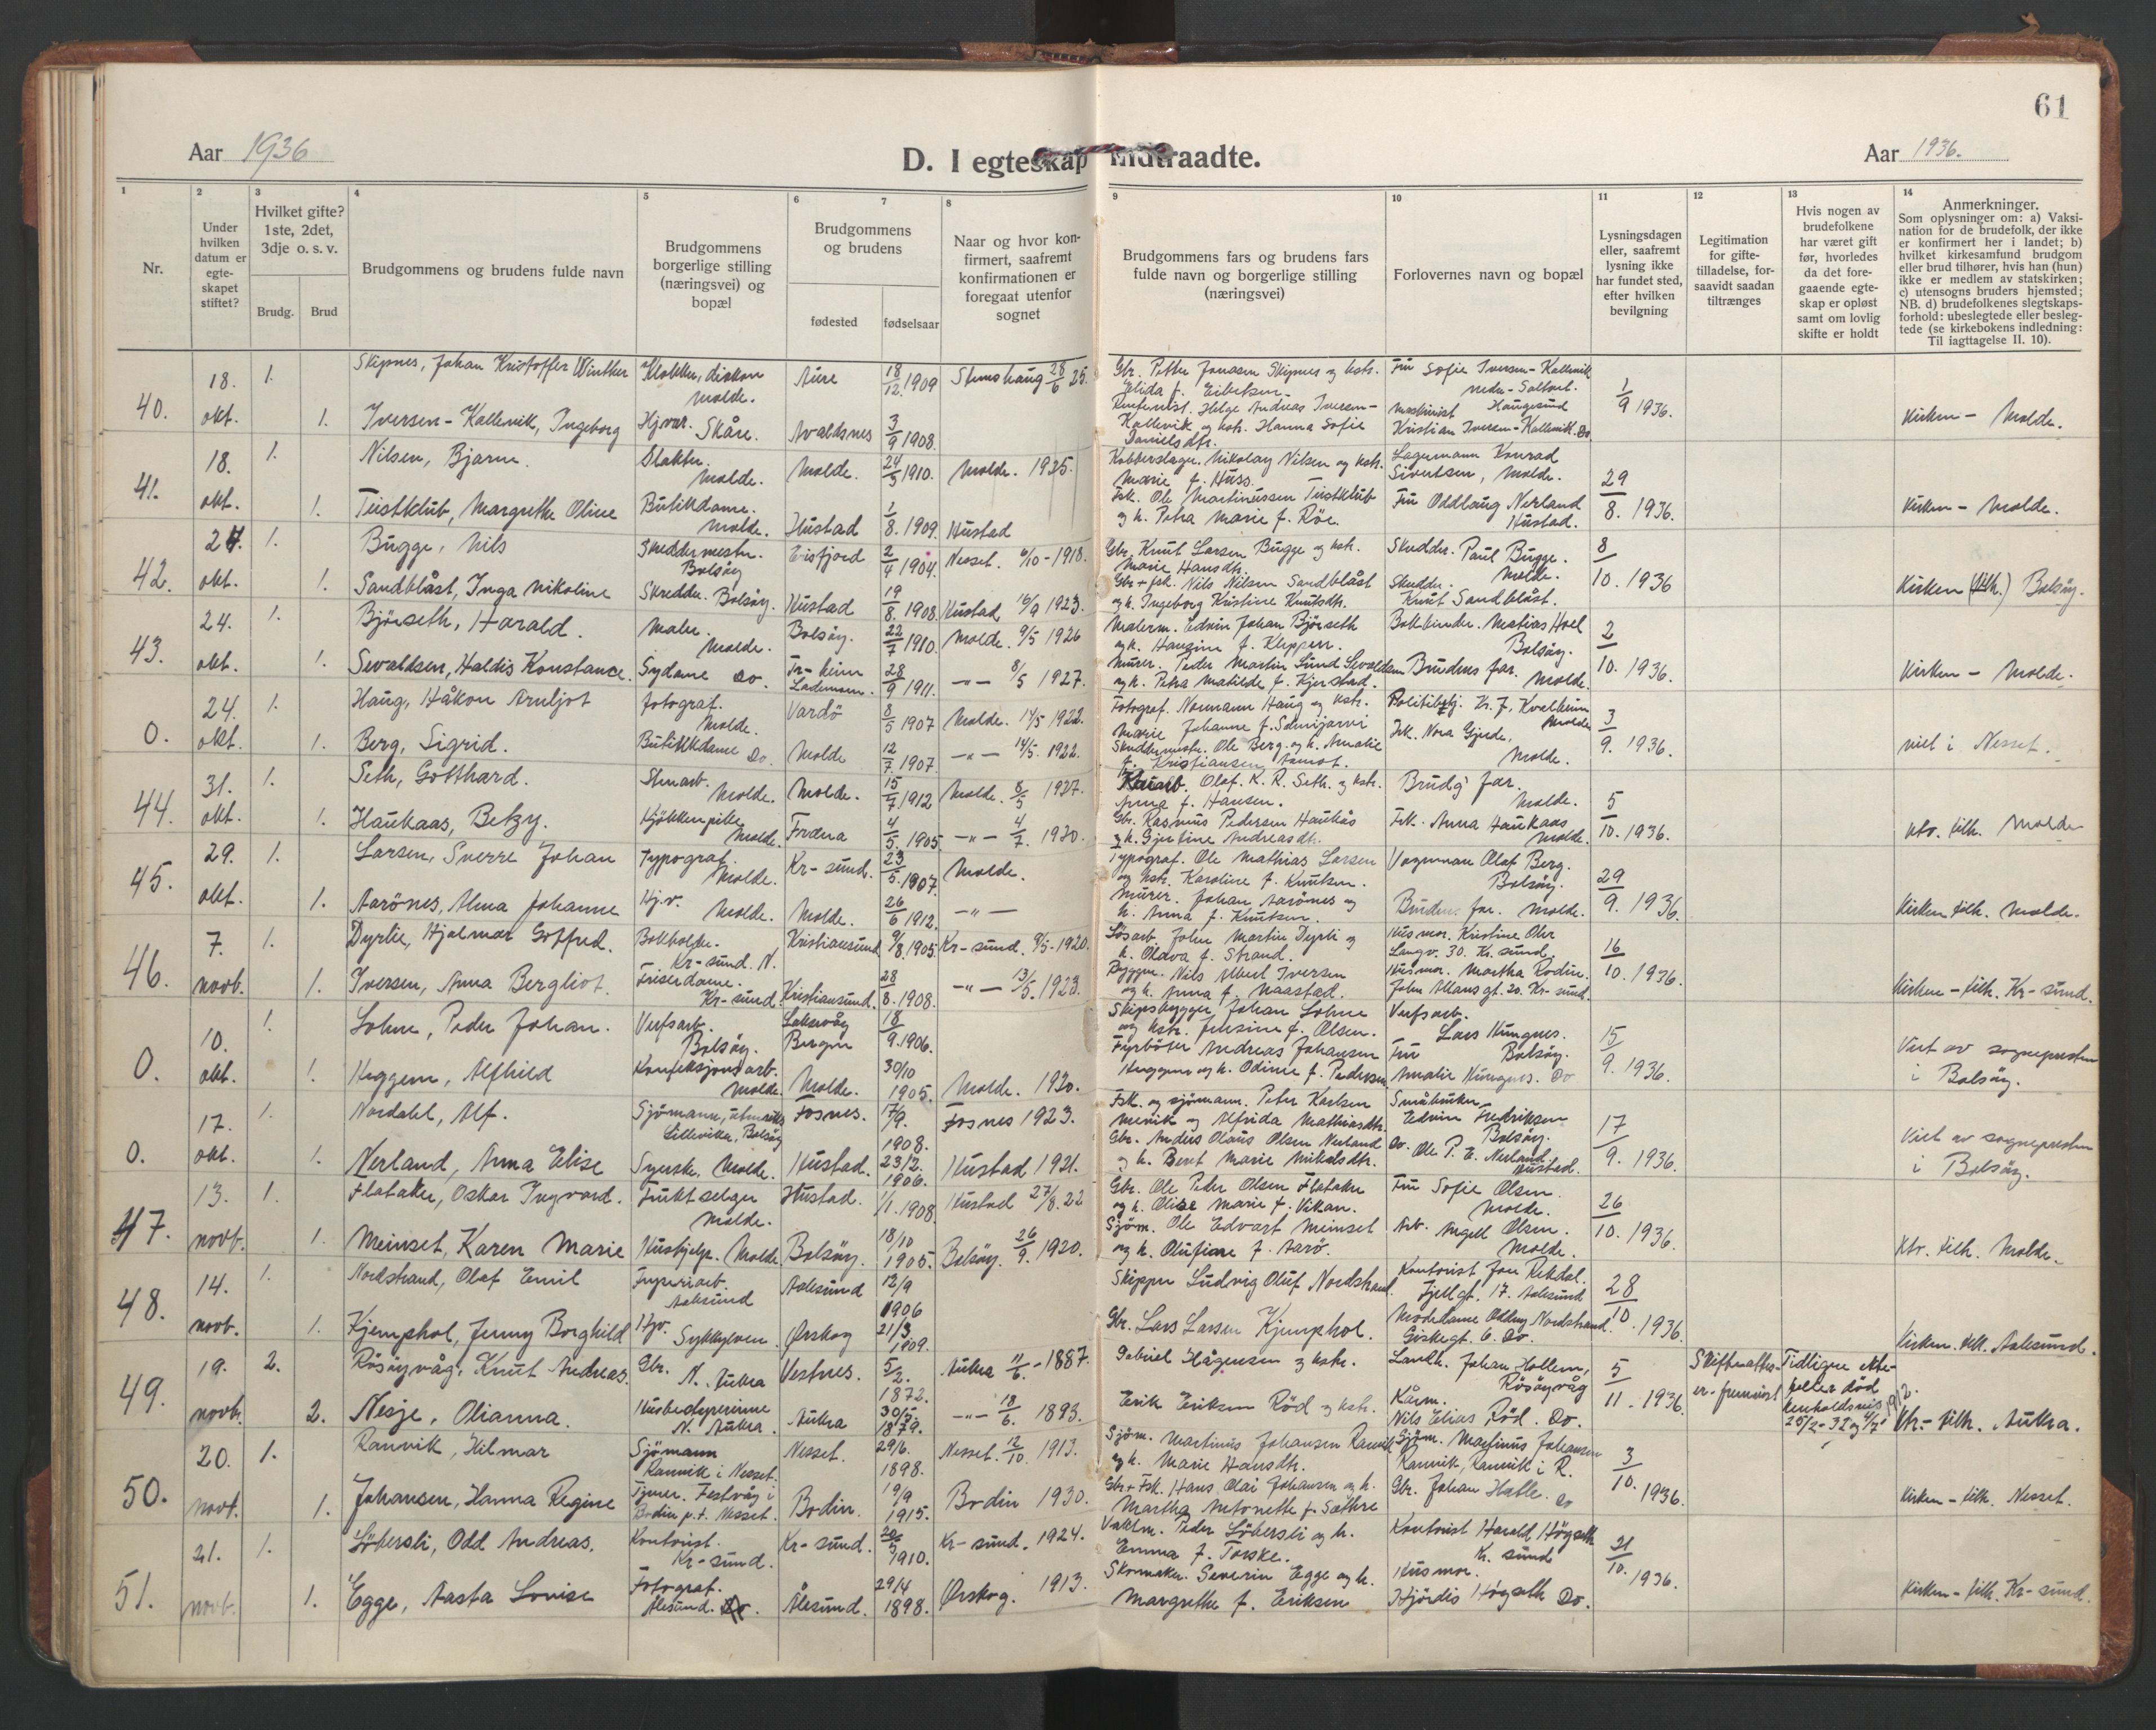 61
Aar 1936
D. I egteskap indtraadte.
Aar 1936.
1 2 3 4 5 6 7 8 9 10 11 12 13 14
Nr.
Under hvilken datum er egte-skapet stiftet?
Hvilket gifte? 1ste, 2det, 3dje o. s. v.
Brudg. Brud
Brudgommens og brudens fulde navn
Brudgommens borgerlige stilling (næringsvei) og bopæl
Brudgommens og brudens
fødested fødselsaar
Naar og hvor kon-firmert, saafremt konfirmationen er foregaat utenfor sognet
Brudgommens fars og brudens fars fulde navn og borgerlige stilling (næringsvei)
Forlovernes navn og bopæl
Lysningsdagen eller, saafremt lysning ikke har fundet sted, efter hvilken bevilgning
Legitimation for gifte-tilladelse, for-saavidt saadan tiltrænges
Hvis nogen av brudefolkene har været gift før, hvorledes da det fore-gaaende egte-skap er opløst samt om lovlig skifte er holdt
Anmerkninger.
Som oplysninger om: a) Vaksi-nation for de brudefolk, der ikke er konfirmert her i landet; b) hvilket kirkesamfund brudgom eller brud tilhører, hvis han (hun) ikke er medlem av statskirken; c) utensogns bruders hjemsted; NB. d) brudefolkenes slegtskaps-forhold: ubeslegtede eller besleg-tede (se kirkebokens indledning: Til iagttagelse II. 10).
40. 18. okt. 1. Skipnes, Johan Kristoffer Winther Klokker, diakon Molde. Aure 18/12 1909 Stemshaug 28/6 25. Gbr. Petter Jonassen Skipnes og hstr. Elida f. Eibertsen. Fru Sofie Iversen-Kallevik 1/9 1936. Kirken - Molde.
1. Iversen-Kallevik, Ingeborg Hj.var. Skåre. Avaldsnes 3/9 1908. Helge Andreas Iversen-Kallevik og hstr. Hanna Sofie Danielsdtr. Maskinist Haugesund Kristian Iversen-Kallevik. Do
41. 18. okt. 1. Nilsen, Bjarne. Slakter. Molde. Molde. 24/3 1910. Molde. 1925. Kobberslager. Nikolay Nilsen og hstr. Marie f. Huss. Lagermann Konrad Sivertsen, Molde. 29/8. 1936. Kirken - Molde.
1. Tustklub, Margrethe Oline Butikdame. Molde. Hustad 1/8. 1909. Hustad Fsk. Ole Martinussen Tustklub og h. Petra Marie f. Röe. Fru Oddlaug Nerland Hustad.
42. 24. okt. 1. Bugge, Nils Skreddermester. Bolsöy Eisfjord 2/4 1904. Nesset. 6/10-1918. Gbr. Knut Larsen Bugge og hstr. Marie Hansdtr. Skredder. Paul Bugge. Molde. 8/10. 1936 Kirken (tilh.) Bolsöy.
1. Sandblåst, Inga Nikoline Skredder. Bolsöy. Hustad 19/8. 1908. Hustad 16/9 1923. Gbr + fsk. Nils Nilsen Sandblåst og h. Ingeborg Kristine Knutsdtr. Skredder. Knut Sandblåst.
43. 24. okt. 1. Björseth, Harald. Maler. Molde. Bolsöy. 22/7 1910. Molde. 9/5 1926 Malerm. Edvin Johan Björseth og h. Haugine f. Kleppen. Bokbinder. Matias Hoel Bolsöy. 2/10. 1936. Kirken - Molde.
1. Sevaldsen, Haldis Konstance. Sydame Do. Tr-heim Lademoen. 28/9 1911. -"- 8/5 1927. Murer. Peder Martin Lund Sevaldsen og h. Petra Matilde f. Kjerstad. Brudens far. Molde.
0. 24. okt. 1. Haug, Håkon Arnljot Fotograf. Molde. Vardö 8/5 1907 Molde. 14/5 1922. Fotograf. Normann Haug og hstr. Marie Johanne f. Politibetj. Kr. J. Kvalheim Molde 3/9. 1936. viet i Nesset.
1. Berg, Sigrid. Butikkdame Do. Molde 12/7 1907. -"- 14/5. 1922. Skreddermester. Ole Berg. og h. Amalie f. Kristiansen Aamot. Frk. Nora Gjerde, Molde.
44. 31. okt. 1. Seth, Gotthard. Stenarb. Molde. Molde. 15/7 1912 Molde. 8/5 1927. Olaf. K. R. Seth. og hstr. Anna f. Hansen. Brudg far. Molde. 5/10. 1936. ktr. tilh. Molde
1. Haukaas, Betzy. Kjökkenpike Molde. Fræna 4/5. 1905 -"- 4/7. 1920. Gbr. Rasmus Pedersen Haukås og h. Gjertine Andreasdtr. Frk. Anna Haukaas Molde.
45. 29. okt. 1. Larsen, Sverre Johan Typograf. Molde. Kr-sund. 23/5. 1907. Molde. Typograf. Ole Mathias Larsen og hstr. Karoline f. Knutsen. Vognman Olaf Berg. Bolsöy. 29/9. 1936. Kirken tilh. Molde.
1. Aarönes, Alma Johanne Hj.v. Molde. Molde. 26/6 1912. -"- Murer. Johan Aarönes og h. Anna f. Knutsen. Brudens far. Molde.
46. 7. novb. 1. Dyrlie, Hjalmar Gotfred. Bokholder. Kr-sund. N. Kristiansund 9/8. 1905. Kr-sund. 9/5-1920. Lösarb. John Martin Dyrli og h. Oldva f. Strand. Husmor. Kristine Langv. 30. Kr. sund. 16/10. 1936. Kirken - tilh. Kr-sund.
1. Iversen, Anna Bergliot. Friserdame. Kr-sund. Kristiansund. 28/8. 1908. -"- 13/5. 1923. Byggm. Nils Albert Iversen og h. Anna f. Naastad. Husmor. Martha Rodin. John Allans gt. 20. Kr-sund.
0. 10. okt. 1. Lohne, Peder Johan. Verfsarb. Bolsöy. Laksevåg Bergen 18/9. 1906. Skipsbygger Johan Lohne og hstr. Jensine f. Olsen. Verfsarb. Lars Hungnes. Bolsöy. 15/9. 1936. Viet av sognepresten i Bolsöy.
1. Heggem, Alfhild Konfeksjonsarb. Molde. Molde. 30/10 1905. Molde. 1920. Fyrböter Andreas Johansen Heggem og h. Odine f. Pedersen. Fru Amalie Hungnes. Do
0. 17. okt. 1. Nordahl, Alf. Sjömann, utenriks Lillevika, Bolsöy Fosnes. 17/9. 1908. Fosnes 1923. Fsk. og sjömann. Peter Karlsen og Alfrida Mathiasdtr. Småbruker Edvin Fredriksen Bolsöy. 17/9. 1936. Viet av sognepresten i Bolsöy.
1. Nerland, Anna Elise Syerske. Molde. Hustad. 23/2. 1906. Hustad 1921. Gbr. Anders Olaus Olsen Nerland og h. Beret Marie Mikalsdtr. Do. Ole P. E. Nerland Hustad.
47. 13. novb. 1. Flataker, Oskar Ingvard. Fruktselger Molde. Hustad. 1/1. 1908. Hustad 27/8. 22 Gbr. Ole Peder Olsen Flataker og h. Olise Marie f. Vikan. Fru Sofie Olsen. Molde. 26/10. 1936. Ktr. tilh. Molde.
1. Meinset, Karen Marie Hushjelp. Molde Bolsöy. 18/10 1905. Bolsöy. 26/9. 1920. Sjöm. Ole Edvart Meinset og h. Olufine f. Aarö. Arb. Angell Olsen. Molde.
48. 14. novb. 1. Nordstrand, Olaf Emil Aalesund Aalesund 12/9 1906 Skipper Ludvig Oluf Nordstrand. Kontorist Jon Rekdal. Fjellgt. 17. Aalesund 28/10. 1936. Kirken. tilh. Aalesund.
1. Kjemphol, Jenny Borghild Hjv. Sykkylven. Ørskog 21/3 1909. Gbr. Lars Larsen Kjemphol. Modedame Oddny Nordstrand. Giskegt. 6. Do.
49. 19. novb. 2. Rösöyvåg, Knut Andreas. Gbr. N. Aukra Vestnes. 5/2. 1872. Aukra 11/6.-1887. Gabriel Hågensen og hstr. Landh. Johan Hollem, Rösöyvåg 5/11. 1936. Skifteattester fremvist Tidligere ekte-feller död henholdsvis 28/2-32 og 4/7 1912. Ktr.- tilh. Aukra.
2. Nesje, Olianna. Husbestyrerinne N. Aukra. Aukra 30/5. 1879. -"- 18/6. 1893. Erik Eriksen Röd og hstr. Kårm. Nils Elias Röd. Do.
50. 20. novb. 1. Ranvik, Hilmar Sjömann Ranvik i Nesset. Nesset. 29/6. 1898. Nesset. 12/10. 1913. Sjöm. Martinus Johansen Ranvik og h. Marie Hansdtr. Sjöm. Martinus Johansen Ranvik, Ranvik i R. 3/10. 1936. Kirken - tilh. Nesset.
1. Johansen, Hanna Regine Tjener. Festvåg i Bodin p.t. Nesset. Bodin. 19/9 1915. Bodin 1930. Gbr + Fsk. Hans Olai Johansen og h. Martha Antonette f. Sæthre Gbr. Johan Hatle. Do
51. 21. novb. 1. Löbersli, Odd Andreas. Kontorist. Kr-sund. Kr-sund. 20/5 1910. Kr-sund. 1924. Vaktm. Peder Löbersli og h. Emma f. Torske. Kontorist Harald Högseth Kr. sund 21/10. 1936. Kirken - tilh. Kr-sund.
1. Egge, Aasta Lovise Fotograf. Ålesund. Ålesund. 29/4 1898. Ørskog. 1913. Skomaker. Severin Egge og h. Margrethe f. Eriksen Husmor. Hjördis Högseth Do.